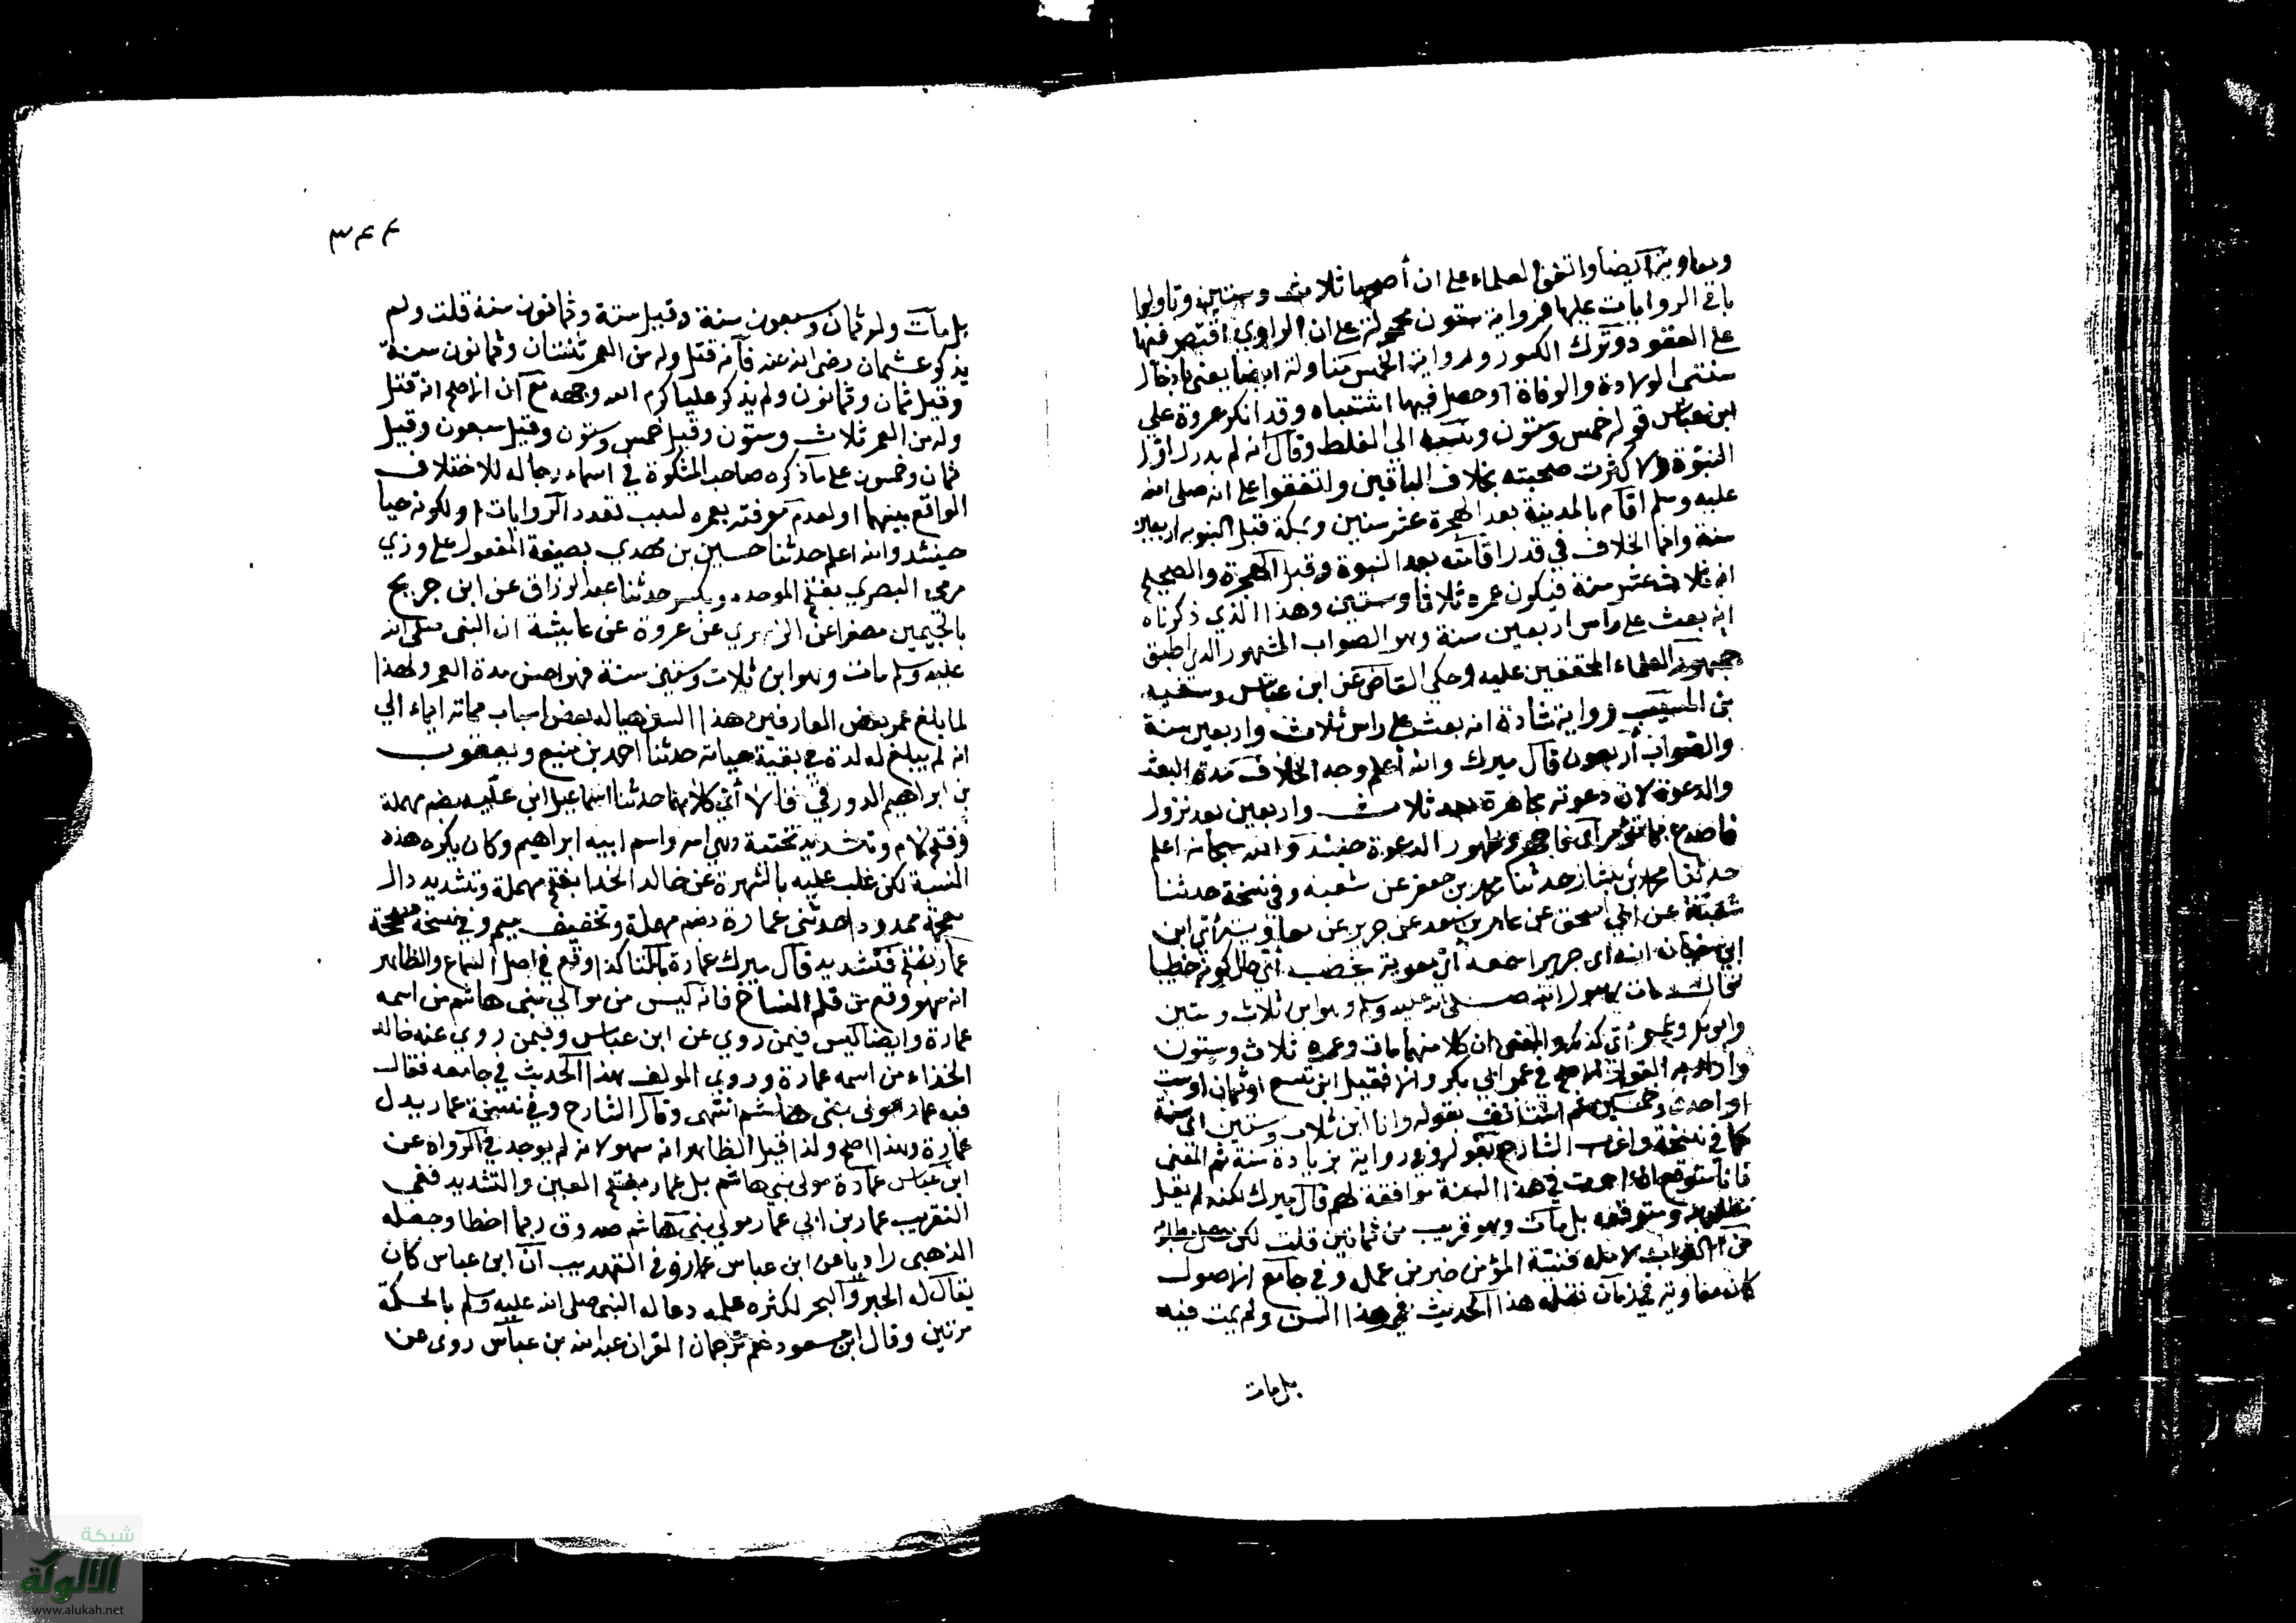 ومعاوية أيضا واتفق العلماء على ان أصحها ثلاث وستين وتاولوا
باقي الروايات عليها فرواية ستون محمولة على ان الراوي اقتصر فيها
على العقود وترك الكسور ورواية الخمس متاولة ايضا يعني بادخال
سنتي الولادة والوفاة اوحصل فيها اشتباه وقد انكر عروة على
ابن عباس قوله خمس وستون ونسبه الي الغلط وقال انه لم يدرك اول
النبوة ولا كثرت صحبته بخلاف الباقين واتفقوا على انه صلى الله
عليه وسلم اقام بالمدينة بعد الهجرة عشر سنين وبمكة قبل النبوة اربعين
سنة وانما الخلاف في قدر اقامته بعد النبوة وقبل الهجرة والصحيح
انه ثلاث عشر سنة فيكون عمره ثلاثا وستين وهذا الذي ذكرناه
انه بعث على راس اربعين سنة وهو الصواب المشهور الذي اطبق
جمهور العلماء المحققين عليه وحكي القاضي عن ابن عباس وسعيد
بن المسيب رواية شاذة انه بعث على راس ثلاث واربعين سنة
والصواب أربعون قال ميرك والله أعلم وجه الخلاف مدة البعث
والدعوة لان دعوته مجاهرة بعد ثلاث واربعين بعد نزول
فاصدع بما تؤمر اى وظهور الدعوة حينئذ والله سبحانه اعلم
حدثنا محمد بن بشار حدثنا محمد بن جعفر عن شعبه وفي نسخة حدثنا
شعبة عن ابي اسحق عن عامر بن سعد عن جرير عن معاوية أي ابن
ابي سفيان انه اى جرير اسمعه أي معوية يخطب أي حال كونه خطيبا
فقال مات رسول الله صلى الله عليه وسلم وهو ابن ثلاث وستين
وابو بكر وعمر أي كذلك والمعنى ان كلا منهما مات وعمره ثلاث وستون
القول الاصح في عمر ابي بكر والا فقيل ابن تسع او ثمان اوست
او احدى وخمسين ثم استأنف بقوله وانا ابن ثلاث وستين اى سنة
كما في نسخة واغرب الشارح بقوله وفي رواية بزيادة سنة ثم المعنى
فانا متوقع ان اموت في هذا السنة موافقة لهم قال ميرك لكنه لم ينل
مطلوبه ومتوقعه بل مات وهو قريب من ثمانين قلت لكن حصل مطلوبه
من الثواب لامله فنية المؤمن خير من عمله وفي جامع الاصول
كان معاوية في زمان نقله هذا الحديث في هذا السن ولم يمت فيه
بل مات
٣٤٤
بل مات وله ثمان وسبعون سنة وقيل ستة وثمانون سنة قلت ولم
يذكر عثمان رضى الله عنه فانه قتل وله من العمر ثنتان وثمانون سنة
وقيل ثمان وثمانون ولم يذكر عليا كرم الله وجهه مع ان الاصح انه قتل
وله من العمر ثلاث وستون وقيل خمس وستون وقيل سبعون وقيل
ثمان وخمسون على ما ذكره صاحب المشكوة في اسماء رجاله للاختلاف
الواقع بينهما او لعدم معرفته بعمره لسبب تعدد الروايات او لكونه حيا
حينئذ والله اعلم حدثنا حسين بن مهدي بصيغة المفعول على وزن
مرمى البصري بفتح الموحدة ويكسر حدثنا عبد الرزاق عن ابن جريج
بالجيمين مصغرا عن الزهري عن عروة عن عايشة ان النبي صلى الله
عليه وسلم مات وهو ابن ثلاث وستين سنة فهو احسن مدة العمر ولهذا
لما بلغ عمر بعض العارفين هذا السن هيا له بعض اسباب مماته ايماء الي
انه لم يبلغ له لذة في بقية حياته حدثنا احمد بن منيع ويعقوب
بن ابراهيم الدورقي قالا أي كلاهما حدثنا اسماعيل ابن علية بضم مهملة
وفتح لام وتشديد تحتية وهي امه واسم ابيه ابراهيم وكان يكره هذه
النسبة لكن غلب عليه بالشهرة عن خالد الحذا بفتح مهملة وتشديد ذال
معجمة ممدود احدثني عمارة بضم مهملة وتخفيف ميم وفي نسخة صحيحة
عمار بفتح فتشديد قال ميرك عمارة بالتا كذا وقع في اصل السماع والظاهر
انه سهو وقع من قلم النساخ فانه ليس من موالي بني هاشم من اسمه
عمارة وايضا ليس فيمن روي عن ابن عباس وفيمن روي عنه خالد
الحذاء من اسمه عمارة وروى المولف هذا الحديث في جامعه فقال
فيه عمار مولى بني هاشم انتهى وقال الشارح وفي نسخة عمار بدل
عمارة وهذا اصح ولذا قيل الظاهر انه سهو لانه لم يوجد في الرواه عن
ابن عباس عمارة مولى بني هاشم بل عمار بفتح العين والتشديد ففي
التقريب عمار بن ابي عمار مولي بني هاشم صدوق ربما اخطا وجعله
الذهبى راويا عن ابن عباس عمار وفي التهذيب ان ابن عباس كان
يقال له الحبر والبحر لكثرة علمه دعا له النبي صلى الله عليه وسلم بالحكمة
مرتين وقال ابن مسعود نعم ترجمان القران عبد الله بن عباس روى عن
شبكة
الألوكة
www.alukah.net